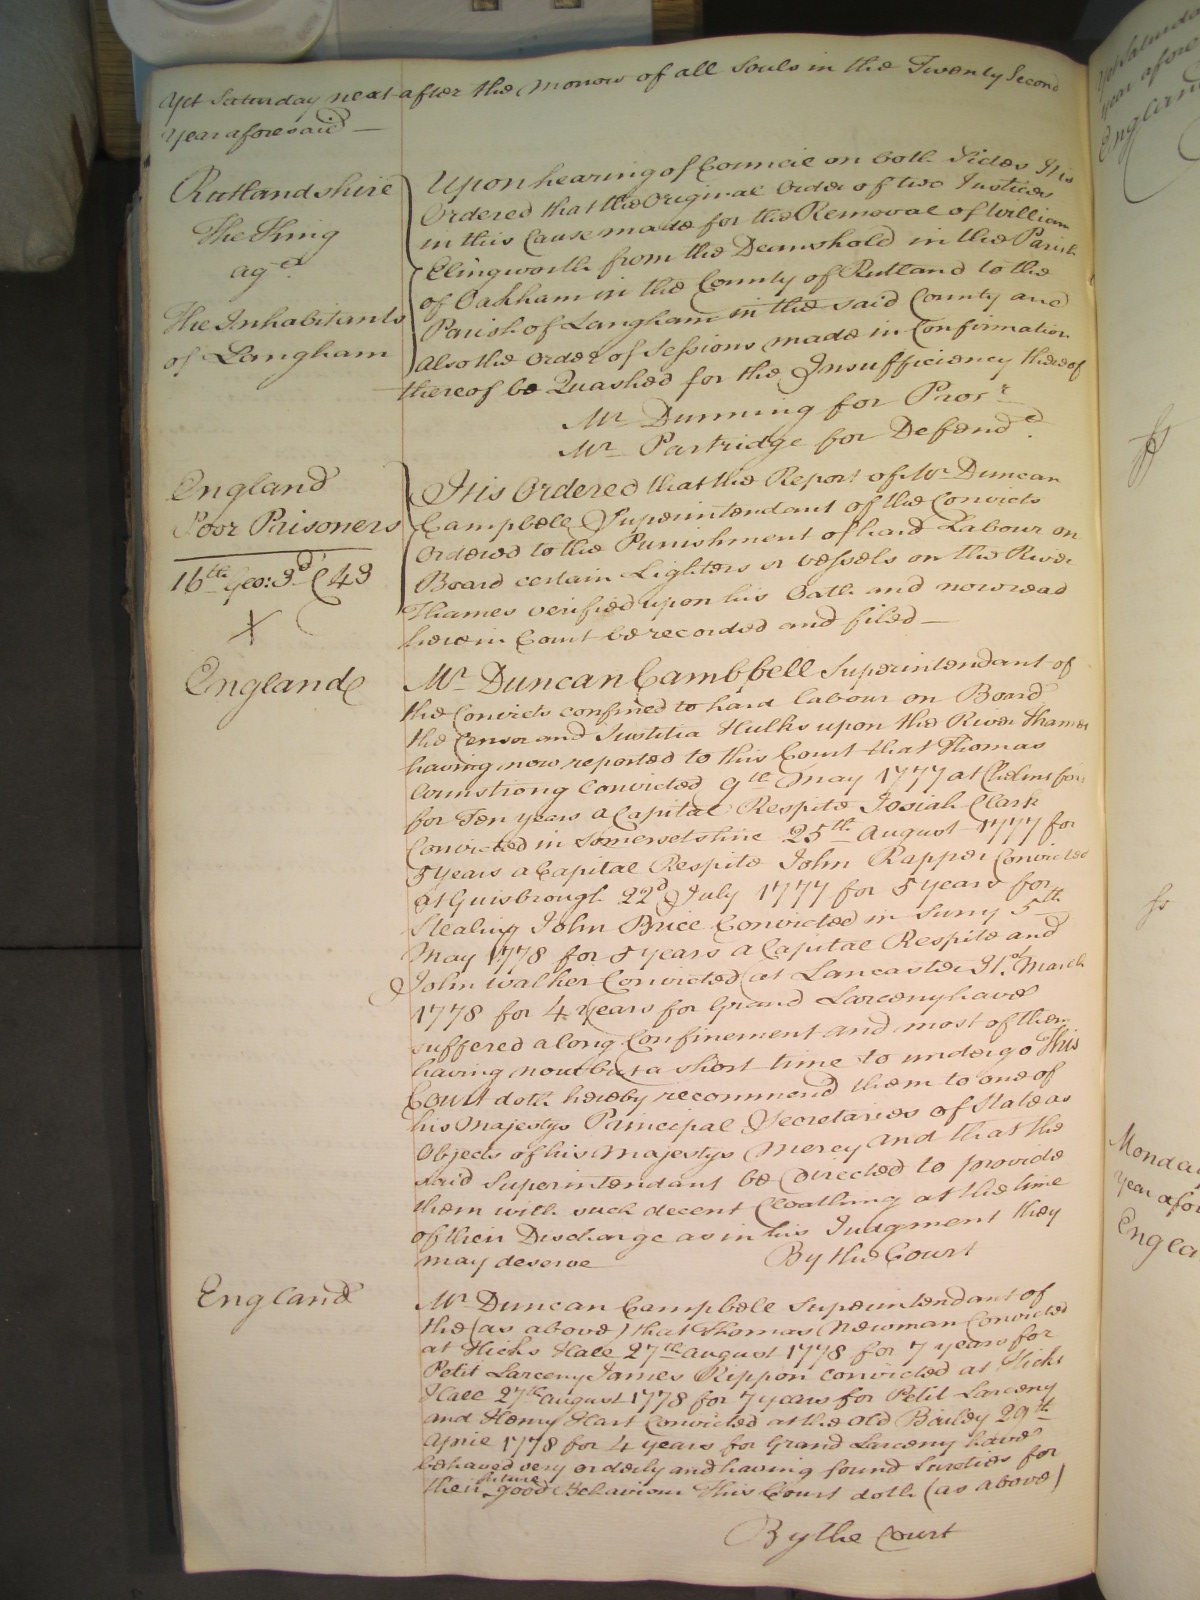 Yet Saturday next after the Morrow of all Souls in the Twenty Second
Year aforesaid —
Rutlandshire
The King
agt
The Inhabitants
of Langham
Upon hearing of Council on both Sides It is
Ordered that the Original Order of two Justices
in this Cause made for the Removal of William
Elingworth from the Deanshold in the Parish
of Oakham in the County of Rutland to the
Parish of Langham in the said County and
Also the Order of Sessions made in Confirmation
thereof be Quashed for the Insufficiency thereof
Mr Dunning for Pros:r
Mr Partridge for Defend.t
England
Poor Prisoners
16th Geo: 3d C 43
X
It is Ordered that the Report of Mr Duncan
Campbell Superintendant of the Convicts
Ordered to the Punishment of hard Labour on
Board certain Lighters or Vessels on the River
Thames verified upon his Oath and now read
here in Court be recorded and filed —
England
Mr Duncan Campbell Superintendant of
the Convicts confined to hard labour on Board
the Censor and Justitia Hulks upon the River Thames
having now reported to this Court that Thomas
Armstrong Convicted 9th May 1777 at Chelmsford
for Ten years a Capital Respite Josiah Clark
Convicted in Somersetshire 25th August 1777 for
5 years a Capital Respite John Rapper Convicted
at Guisbrough 22d July 1777 for 5 years for
Stealing John Brice Convicted in Surry 5th
May 1778 for 5 years a Capital Respite and
John Walker Convicted at Lancaster 31st March
1778 for 4 Years for Grand Larceny have
suffered a long Confinement and most of them
having now but a short time to undergo This
Court doth hereby recommend them to one of
his Majestys Principal Secretaries of State as
Objects of his Majestys Mercy and that the
said Superintendant be Directed to provide
them with such decent Cloathing at the time
of their Discharge as in his Judgment they
may deserve By the Court
England
Mr Duncan Campbell Superintendant of
the (as above) that Thomas Newman Convicted
at Hicks Hall 27th August 1778 for 7 years for
Petit Larceny James Rippon convicted at Hicks
Hall 27th August 1778 for 7 years for Petit Larceny
and Henry Hart Convicted at the Old Bailey 29th
April 1778 for 4 years for Grand Larceny have
behaved very orderly and having found Sureties for
their future good Behaviour This Court doth (as above)
By the Court